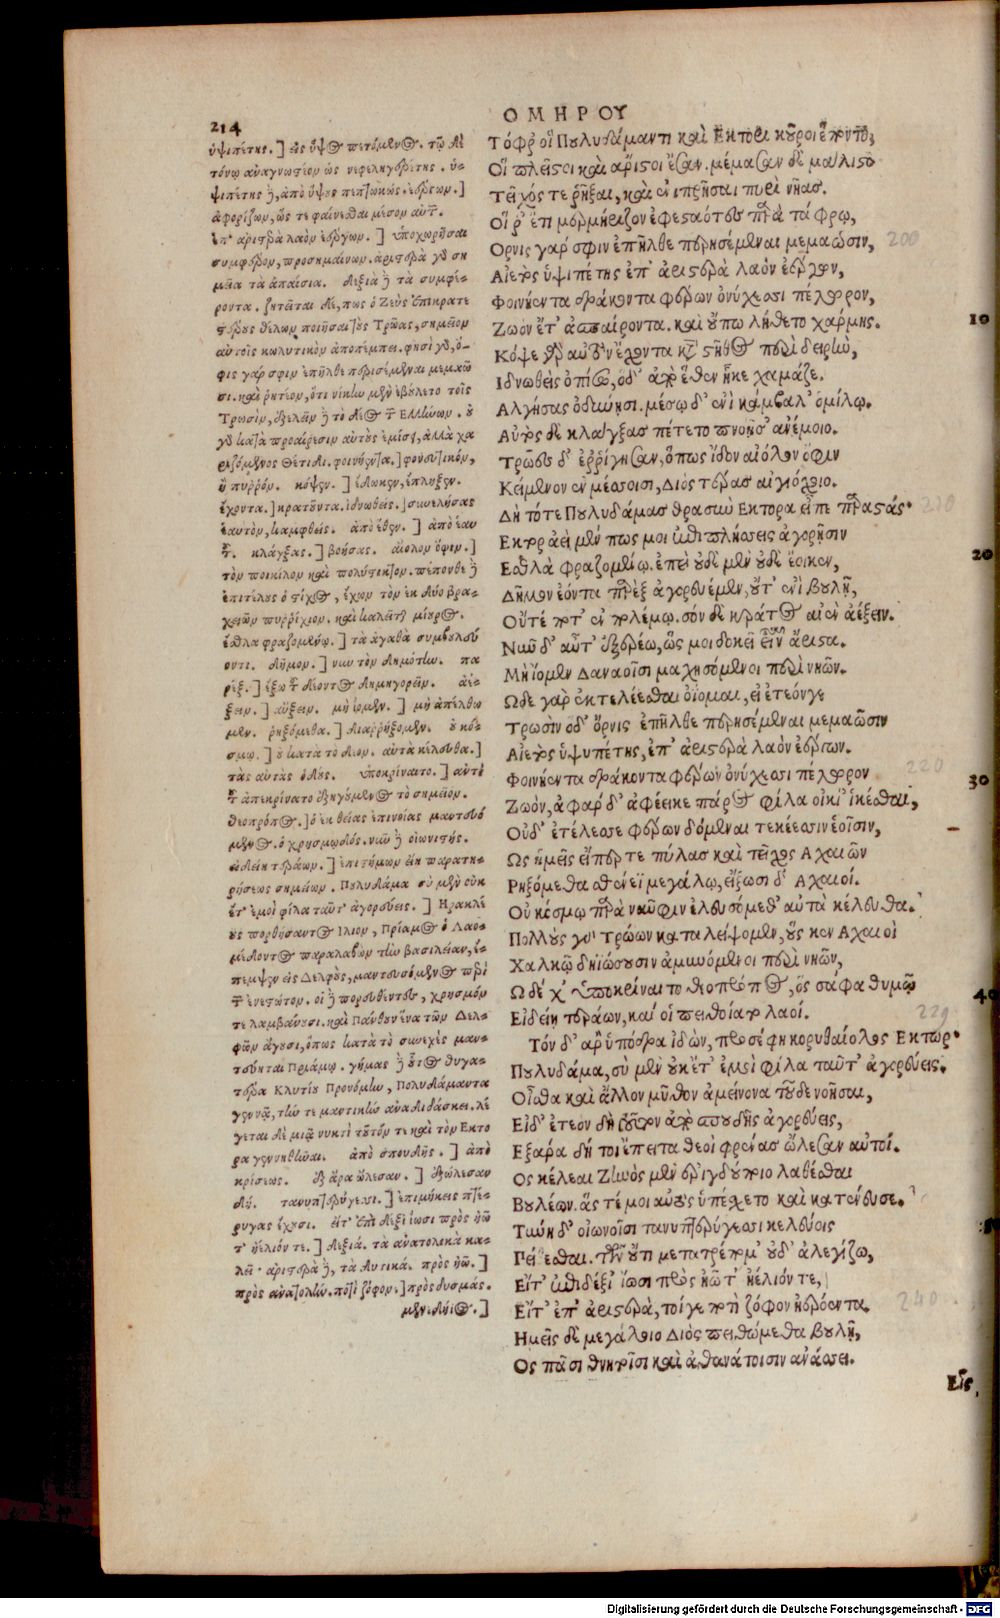 214
ΟΜΗΡΟΥ
ὑψιπέτης.] εἰς ὕψος πετόμενος. τῷ δὲ
τόνῳ ἀναγνωστέον ὡς νεφεληγερέτης. ὑ-
ψιπέτης ἢ, ἀπὸ ὕψους
ἀφορίζων, ὥς τε φαίνεσθαι μέσον αὐτ.
ἐπ' ἀριστερὰ λαὸν ἐέργων.] ὑποχωρῆσαι
συμφέρον, προσημαίνων. ἀριστερὰ γὰρ ση
μεῖα τὰ ἀπαίσια. δεξιὰ ἢ τὰ συμφέ-
ροντα. ζητεῖται δέ, πως ὁ Ζεὺς ἐπικρατε
στέρους θέλων ποιῆσαι τοὺς Τρῶας, σημεῖον
αὐτοῖς κωλυτικὸν ἀποπέμπει. φησὶ γὰρ, ὄρ-
νις γάρ σφιν ἐπῆλθε περησέμεναι μεμαῶ
σι. καὶ ῥητέον, ὅτι νίκην μὲν ἐβούλετο τοῖς
Τρωσὶν,
γὰρ κατὰ προαίρεσιν αὐτοὺς ἐμίσει, ἀλλὰ χα
ριζόμενος Θέτιδι. φοινήεντα.]
ἢ πυρρόν. κόψεν.] ἔδωκεν, ἔπληξεν.
ἔχοντα.] κρατοῦντα. ἰδνωθείς.] συνελκύσας
ἑαυτὸν, καμφθείς. ἀπὸ ἕθεν.] ἀπὸ ἑαυ
τ. κλάγξας.] βοήσας. αἰόλον ὄφιν.]
τὸν ποικίλον καὶ πολύστικτον. πέπονθε ἢ
ἐπιτέλους ὁ στίχος, ἔχων τὸν ἐκ δύο βρα-
χειῶν πυρρίχιον. καὶ καλεῖται μίουρος.
ἐσθλα φραζομένῳ.] τὰ ἀγαθὰ συμβουλεύ
οντι. δῆμον.] νῦν τὸν δημότην. πα
ρέξ.] ἔξω τ δέοντος δημηγορεῖν. ἀέ-
ξειν.] αὔξειν. μὴ ἴομεν.] μὴ ἀπέλθω
μεν. ῥηξόμεθα.] διαρρήξομεν. οὐ κό-
σμῳ.] οὐ κατὰ τὸ δέον. αὐτὰ κέλευθα.]
τὰς αὐτὰς ὁδούς. ὑποκρίναιτο.] αὐτὸ
τ ἀπεκρίνατο ἐξηγούμενος τὸ σημεῖον.
θεοπρόπος.] ὁ ἐκ θείας ἐπινοίας μαντευό
μενος. ὁ χρησμῳδός. νῦν ἢ οἰωνιστής.
εἰδείη τεράων.] ἐπιστήμων εἴη παρατη-
ρήσεως σημείων. Πουλυδάμα σὺ μὲν οὐκ
ἔτ' ἐμοὶ φίλα ταῦτ' ἀγορεύεις.] Ηρακλέ
ους πορθήσαντος Ιλιον, Πρίαμος ὁ Λαο-
μέδοντος παραλαβὼν τὴν βασιλείαν, ἔ-
πεμψεν εἰς Δελφοὺς, μαντευσόμενος περὶ
τ ἐνεστώτων. οἱ ἢ πορευθέντες, χρησμόν
τε λαμβάνουσι. καὶ Πάνθουν ἕνα τῶν Δελ-
φῶν ἄγουσι, ὅπως κατὰ τὸ συνεχὲς μαν-
τεύηται Πριάμῳ. γήμας ἢ οὗτος θυγα-
τέρα Κλυτίου Προνόμην, Πολυδάμαντα
γεννᾷ, τήν τε μαντικὴν ἀναδιδάσκει. λέ
γεται δὲ μιᾷ νυκτὶ τοῦτόν τε καὶ τὸν Εκτο
ρα γεννηθῆναι. ἀπὸ σπουδῆς.] ἀπὸ
κρίσεως. ἐξ ἄρα ὤλεσαν.] ἐξώλεσαν
δή. τανυπτερύγεσι.] ἐπιμήκεις πτέ-
ρυγας ἔχουσι. εἴτ' ἐπὶ δεξί' ἴωσι πρὸς ἠῶ
τ' ἠέλιόν τε.] δεξιά. τὰ ἀνατολικὰ κα-
λεῖ. ἀριστερὰ ἢ, τὰ δυτικά. πρὸς ἠῶ.]
πρὸς ἀνατολήν. ποτὶ ζόφον.] πρὸς δυσμάς.
Τόφρ οἳ Πουλυδάμαντι καὶ Εκτορι κοῦροι ἕποντο,
Οἳ πλεῖστοι καὶ ἄριστοι ἔσαν. μέμασαν δὲ μάλιστα
Τεῖχός τε ῥήξειν, καὶ ἐνιπρήσειν πυρὶ νῆας.
Οἵ ῥ' ἔτι μερμήριζον ἐφεσταότες παρὰ τάφρῳ,
Ορνις γάρ σφιν ἐπῆλθε περησέμεναι μεμαῶσιν,
Αἰετὸς ὑψιπέτης ἐπ' ἀριστερὰ λαὸν ἐέργων,
Φοινήεντα δράκοντα φέρων ὀνύχεσσι πέλωρον,
Ζωὸν ἔτ' ἀσπαίροντα. καὶ οὔπω λήθετο χάρμης.
Κόψε γὰρ αὐτὸν ἔχοντα κατὰ στῆθος παρὰ δειρὴν,
Ιδνωθεὶς ὀπίσω, ὁ δ' ἀπὸ ἕθεν ἧκε χαμᾶζε.
Αλγήσας ὀδύνῃσι. μέσῳ δ' ἐνὶ κάμβαλ' ὁμίλῳ.
Αὐτὸς δὲ κλάγξας πέτετο πνοιῇς ἀνέμοιο.
Τρῶες δ' ἐρρίγησαν, ὅπως ἴδον αἰόλον ὄφιν
Κείμενον ἐν μέσοισι, Διὸς τέρας αἰγιόχοιο.
Δὴ τότε Πουλυδάμας θρασὺν Εκτορα εἶπε παραστάς.
Εκτορ ἀεὶ μέν πως μοι ἐπιπλήσσεις ἀγορῇσιν
Εσθλὰ φραζομένῳ. ἐπεὶ οὐδὲ μὲν οὐδὲ ἔοικεν,
Δῆμον ἐόντα παρὲξ ἀγορευέμεν, οὔτ' ἐνὶ βουλῇ,
Οὔτέ ποτ' ἐν πολέμῳ. σὸν δὲ κράτος αἰὲν ἀέξειν.
Νῦν δ' αὖτ' ἐξερέω, ὥς μοι δοκεῖ εἶναι ἄριστα.
Μὴ ἴομεν Δαναοῖσι μαχησόμενοι περὶ νηῶν.
Ωδε γὰρ ἐκτελέεσθαι ὀΐομαι, εἰ ἐτεόν γε
Τρωσὶν ὁδ' ὄρνις ἐπῆλθε περησέμεναι μεμαῶσιν
Αἰετὸς ὑψυπέτης, ἐπ' ἀριστερὰ λαὸν ἐέργων.
Φοινήεντα δράκοντα φέρων ὀνύχεσσι πέλωρον
Ζωὸν, ἄφαρ δ' ἀφέηκε πάρος φίλα οἰκί' ἱκέσθαι,
Οὐδ' ἐτέλεσσε φέρων δόμεναι τεκέεσσιν ἑοῖσιν,
Ως ἡμεῖς εἴπερ τε πύλας καὶ τεῖχος Αχαιῶν
Ρηξόμεθα σθένεϊ μεγάλῳ, εἴξωσι δ' Αχαιοί.
Οὐ κόσμῳ παρὰ ναῦφιν ἐλευσόμεθ' αὐτὰ κέλευθα.
Πολλοὺς γὰρ Τρώων καταλείψομεν, οὕς κεν Αχαιοὶ
Χαλκῷ δηϊώσουσιν ἀμυνόμενοι περὶ νηῶν,
Ωδέ χ' ὑποκρίναιτο θεοπρόπος, ὃς σάφα θυμῷ
Εἰδείη τεράων, καί οἱ πειθοίατο λαοί.
Τὸν δ' ἄρ' ὑπόδρα ἰδὼν, προσέφη κορυθαίολος Εκτωρ.
Πουλυδάμα, σὺ μὲν οὐκ ἔτ' ἐμοὶ φίλα ταῦτ' ἀγορεύεις.
Οἶσθα καὶ ἄλλον μῦθον ἀμείνονα τοῦδε νοῆσαι,
Εἰ δ' ἐτεὸν δὴ τοῦτον ἀπὸ σπουδῆς ἀγορεύεις,
Εξ ἄρα δή τοι ἔπειτα θεοὶ φρένας ὤλεσαν αὐτοί.
Ος κέλεαι Ζηνὸς μὲν ἐριγδούποιο λαθέσθαι
Βουλέων. ἅς τέ μοι αὐτὸς ὑπέσχετο καὶ κατένευσε.
Τύνη δ' οἰωνοῖσι τανυπτερύγεσσι κελεύεις
Πείθεσθαι. τῶν οὔτι μετατρέπομ' οὐδ' ἀλεγίζω,
Εἴτ' ἐπὶ δεξί' ἴωσι πρὸς ἠῶτ' ἠέλιόν τε,
Εἴτ' ἐπ' ἀριστερὰ, τοίγε ποτὶ ζόφον ἠερόεντα.
Ημεῖς δὲ μεγάλοιο Διὸς πειθώμεθα βουλῇ,
Ος πᾶσι θνητοῖσι καὶ ἀθανάτοισιν ἀνάσσει.
10
20
30
40
200
210
220
229
240
Εἷς
Digitalisierung gefördert durch die Deutsche Forschungsgemeinschaft - DFG